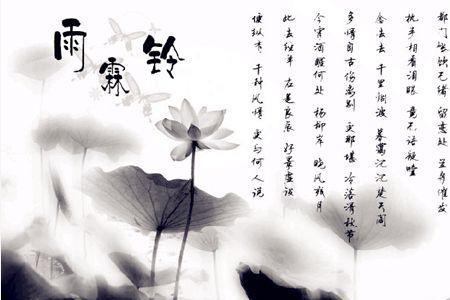 雨霖铃
都门帐饮无绪 留恋处 兰舟催发
执手相看泪眼 竟无语凝噎
念去去 千里烟波 暮霭沉沉楚天阔
多情自古伤离别 更那堪 冷落清秋节
今宵酒醒何处 杨柳岸 晓风残月
此去经年 应是良辰 好景虚设
便纵有 千种风情 更与何人说